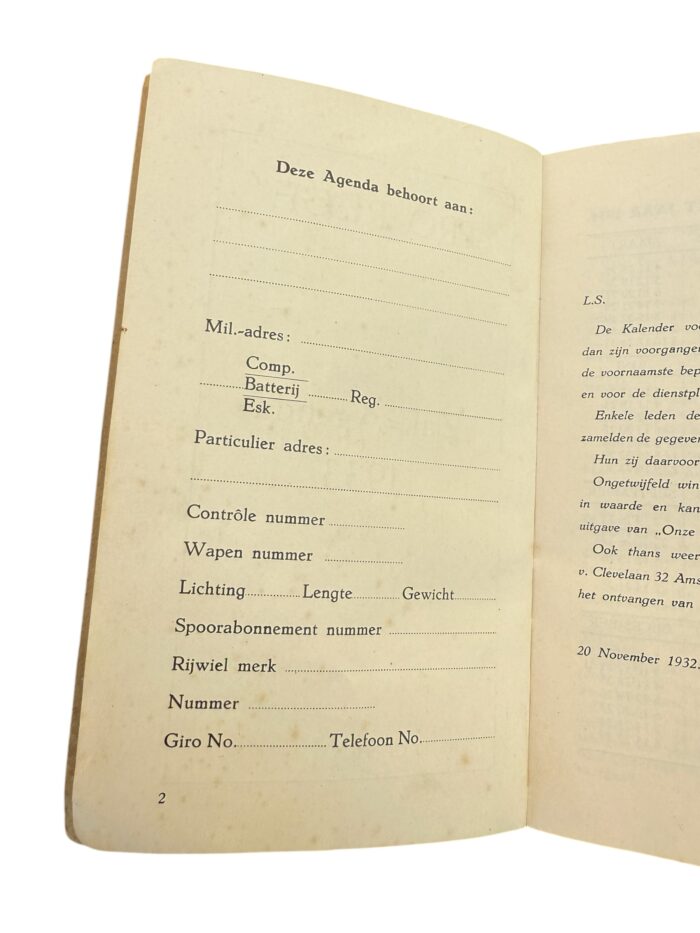 Deze Agenda behoort aan:
Mil.-adres:
Comp.
Batterij
Reg.
Esk.
Particulier adres:
Contrôle nummer
Wapen nummer
Lichting Lengte Gewicht
Spoorabonnement nummer
Rijwiel merk
Nummer
Giro No. Telefoon No.
2
L.S.
De Kalender
dan zijn
de voornaamste
en voor de
Enkele leden de
zamelden de
Hun zij daarvoor
Ongetwijfeld
in waarde en
uitgave van „Onze
Ook thans
v. Clevelaan 32
het ontvangen van
20 November 1932.